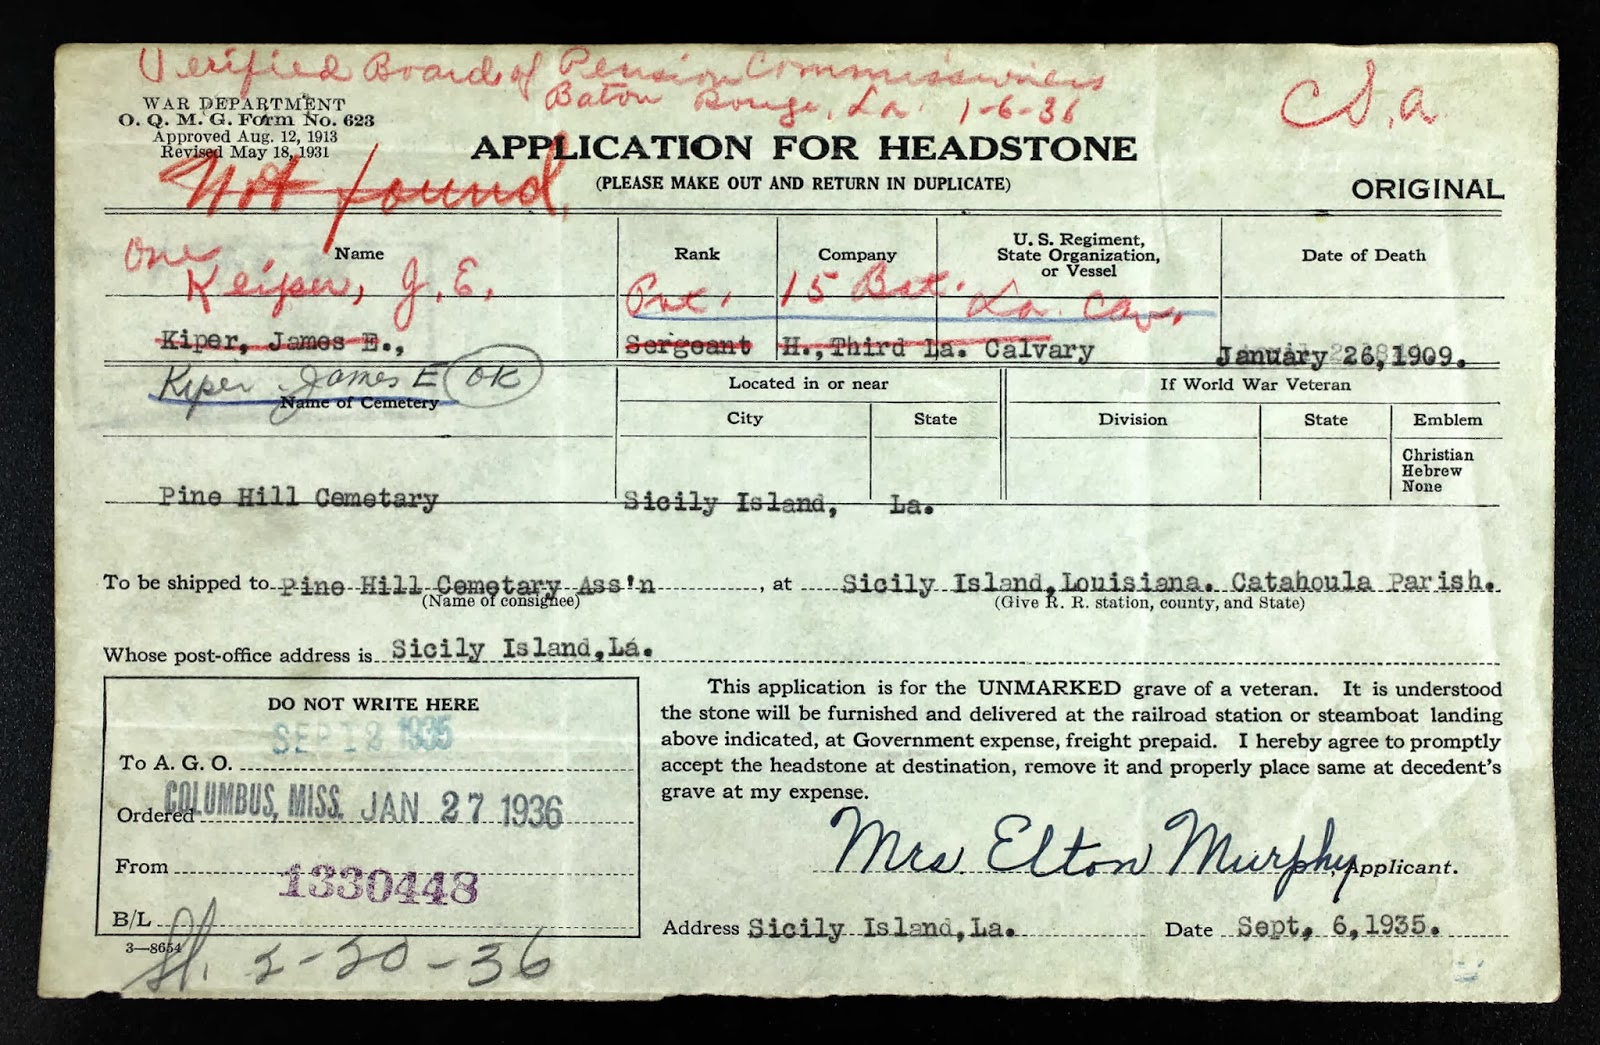 Verified Board of Pension Commissioners
Baton Rouge, La. 1-6-36
C.S.A.
WAR DEPARTMENT
O. Q. M. G. Form No. 623
Approved Aug. 12, 1913
Revised May 18, 1931
Not found
APPLICATION FOR HEADSTONE
(PLEASE MAKE OUT AND RETURN IN DUPLICATE)
ORIGINAL
Name
Rank
Company
U. S. Regiment,
State Organization,
or Vessel
Date of Death
One
Keiper, J. E.
Pvt. 15 Bat. La. Cav.
Kiper, James E.,
Sergeant
H., Third La. Calvary
January 26, 1909.
Kiper James E OK
Name of Cemetery
Located in or near
If World War Veteran
City
State
Division
State
Emblem
Christian
Hebrew
None
Pine Hill Cemetary
Sicily Island,
La.
To be shipped to Pine Hill Cemetary Ass'n, at Sicily Island, Louisiana. Catahoula Parish.
(Name of consignee)
(Give R. R. station, county, and State)
Whose post-office address is Sicily Island, La.
DO NOT WRITE HERE
SEP 12 1935
To A. G. O.
COLUMBUS, MISS. JAN 27 1936
Ordered
From
1330448
B/L
3—8654
2-20-36
This application is for the UNMARKED grave of a veteran. It is understood
the stone will be furnished and delivered at the railroad station or steamboat landing
above indicated, at Government expense, freight prepaid. I hereby agree to promptly
accept the headstone at destination, remove it and properly place same at decedent's
grave at my expense.
Mrs. Elton Murphy, Applicant.
Address Sicily Island, La.
Date Sept, 6, 1935.